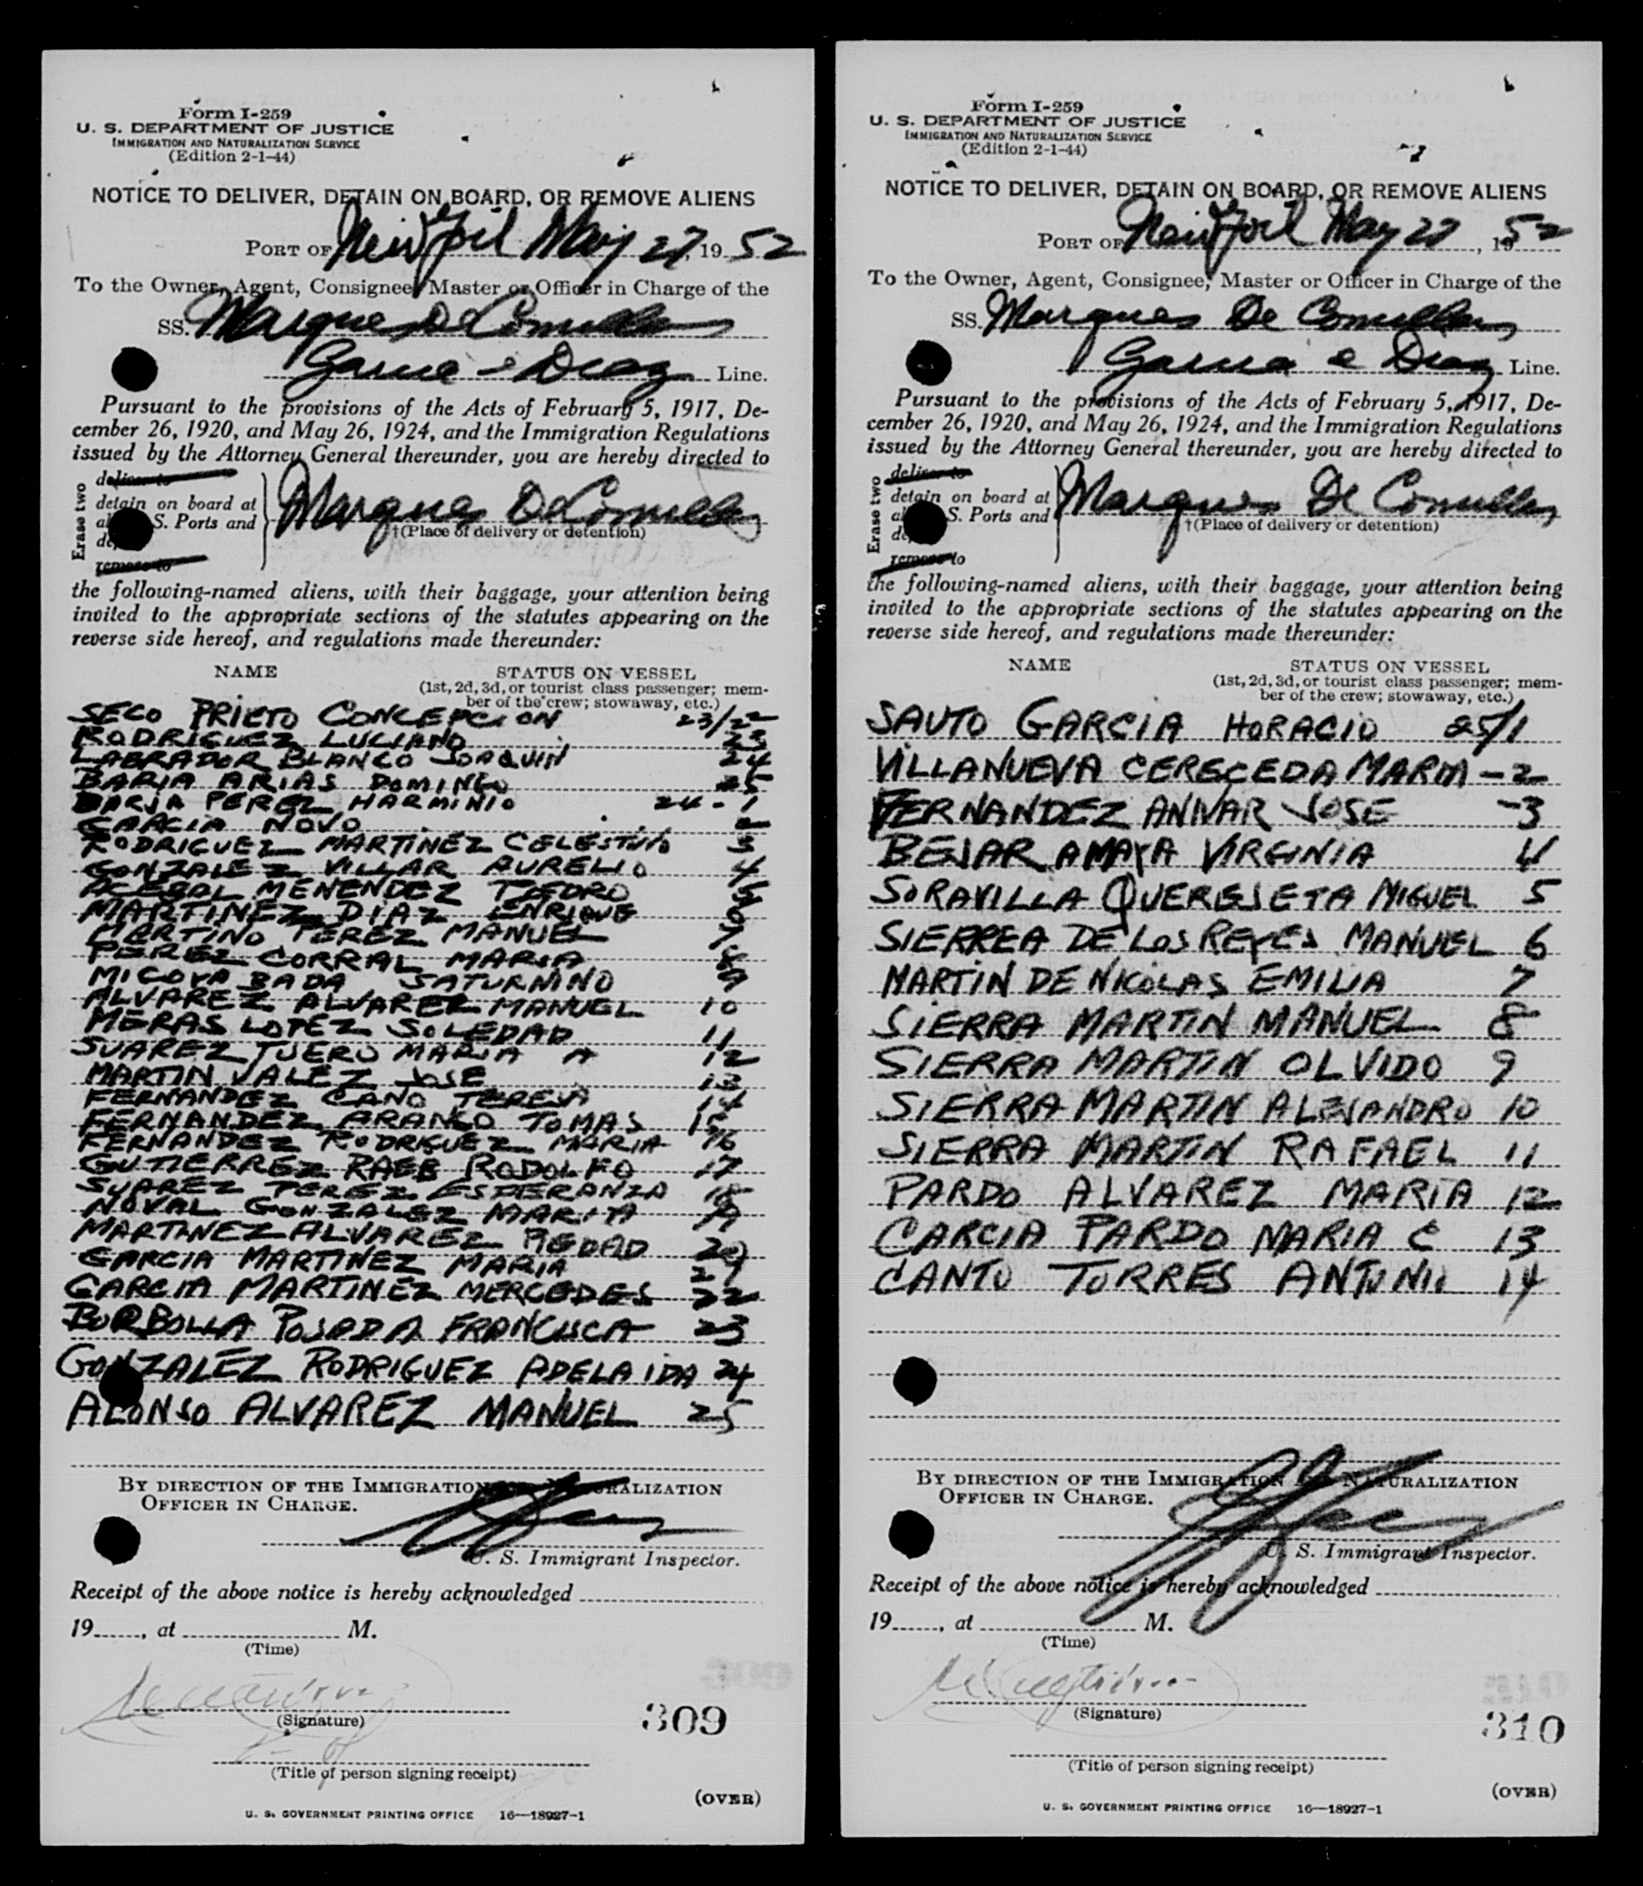 Form I-259
U. S. DEPARTMENT OF JUSTICE
IMMIGRATION AND NATURALIZATION SERVICE
(Edition 2-1-44)
NOTICE TO DELIVER, DETAIN ON BOARD, OR REMOVE ALIENS
PORT OF New York May 27, 19 52
To the Owner, Agent, Consignee, Master or Officer in Charge of the
SS. Marques De Comillas
Garcia e Diaz Line.
Pursuant to the provisions of the Acts of February 5, 1917, De-
cember 26, 1920, and May 26, 1924, and the Immigration Regulations
issued by the Attorney General thereunder, you are hereby directed to
Erase two
deliver to
detain on board at
S. Ports and
remove to
Marques De Comillas
†(Place of delivery or detention)
the following-named aliens, with their baggage, your attention being
invited to the appropriate sections of the statutes appearing on the
reverse side hereof, and regulations made thereunder:
NAME STATUS ON VESSEL
(1st, 2d, 3d, or tourist class passenger; mem-
ber of the crew; stowaway, etc.)
SECO PRIETO CONCEPCION 23/22
RODRIGUEZ LUCIANO 23
LABRADOR BLANCO JOAQUIN 24
BARIA ARIAS DOMINGO 25
BARIA PEREZ HARMINIO 24-1
GARCIA NOVO 2
RODRIGUEZ MARTINEZ CELESTINO 3
GONZALEZ VILLAR AURELIO 4
ACEBAL MENENDEZ PEDRO 5
MARTINEZ DIAZ ENRIQUE 6
MARTINO PEREZ MANUEL 7
PEREZ CORRAL MARIA 8
MICOYA BADA SATURNINO 9
ALVAREZ ALVAREZ MANUEL 10
MERAS LOPEZ SOLEDAD 11
SUAREZ TUERO MARIA A 12
MARTIN VALEZ JOSE 13
FERNANDEZ CANO TERESA 14
FERNANDEZ ARANGO TOMAS 15
FERNANDEZ RODRIGUEZ MARIA 16
GUTIERREZ RAEB RODOLFO 17
SUAREZ PEREZ ESPERANZA 18
NOVAL GONZALEZ MARITA 19
MARTINEZ ALVAREZ PIEDAD 20
GARCIA MARTINEZ MARIA 21
GARCIA MARTINEZ MERCEDES 22
BORBOLLA POSADA FRANCISCA 23
GONZALEZ RODRIGUEZ ADELAIDA 24
ALONSO ALVAREZ MANUEL 25
BY DIRECTION OF THE IMMIGRATION AND NATURALIZATION
OFFICER IN CHARGE.
U. S. Immigrant Inspector.
Receipt of the above notice is hereby acknowledged
19......, at M.
(Time)
(Signature)
309
(Title of person signing receipt)
(OVER)
U. S. GOVERNMENT PRINTING OFFICE 16—18927-1
Form I-259
U. S. DEPARTMENT OF JUSTICE
IMMIGRATION AND NATURALIZATION SERVICE
(Edition 2-1-44)
NOTICE TO DELIVER, DETAIN ON BOARD, OR REMOVE ALIENS
PORT OF New York May 27, 1952
To the Owner, Agent, Consignee, Master or Officer in Charge of the
SS. Marques De Comillas
Garcia e Diaz Line.
Pursuant to the provisions of the Acts of February 5, 1917, De-
cember 26, 1920, and May 26, 1924, and the Immigration Regulations
issued by the Attorney General thereunder, you are hereby directed to
Erase two
deliver to
detain on board at
S. Ports and
remove to
Marques De Comillas
†(Place of delivery or detention)
the following-named aliens, with their baggage, your attention being
invited to the appropriate sections of the statutes appearing on the
reverse side hereof, and regulations made thereunder:
NAME STATUS ON VESSEL
(1st, 2d, 3d, or tourist class passenger; mem-
ber of the crew; stowaway, etc.)
SAUTO GARCIA HORACIO 25/1
VILLANUEVA CERECEDA MARIA -2
FERNANDEZ ANIVAR JOSE -3
BEJAR AMAYA VIRGINIA 4
SORAVILLA QUEREJETA MIGUEL 5
SIERREA DE LOS REYES MANUEL 6
MARTIN DE NICOLAS EMILIA 7
SIERRA MARTIN MANUEL 8
SIERRA MARTIN OLVIDO 9
SIERRA MARTIN ALEJANDRO 10
SIERRA MARTIN RAFAEL 11
PARDO ALVAREZ MARIA 12
GARCIA PARDO MARIA C 13
CANTO TORRES ANTONIO 14
BY DIRECTION OF THE IMMIGRATION AND NATURALIZATION
OFFICER IN CHARGE.
U. S. Immigrant Inspector.
Receipt of the above notice is hereby acknowledged
19......, at M.
(Time)
(Signature)
310
(Title of person signing receipt)
(OVER)
U. S. GOVERNMENT PRINTING OFFICE 16—18927-1